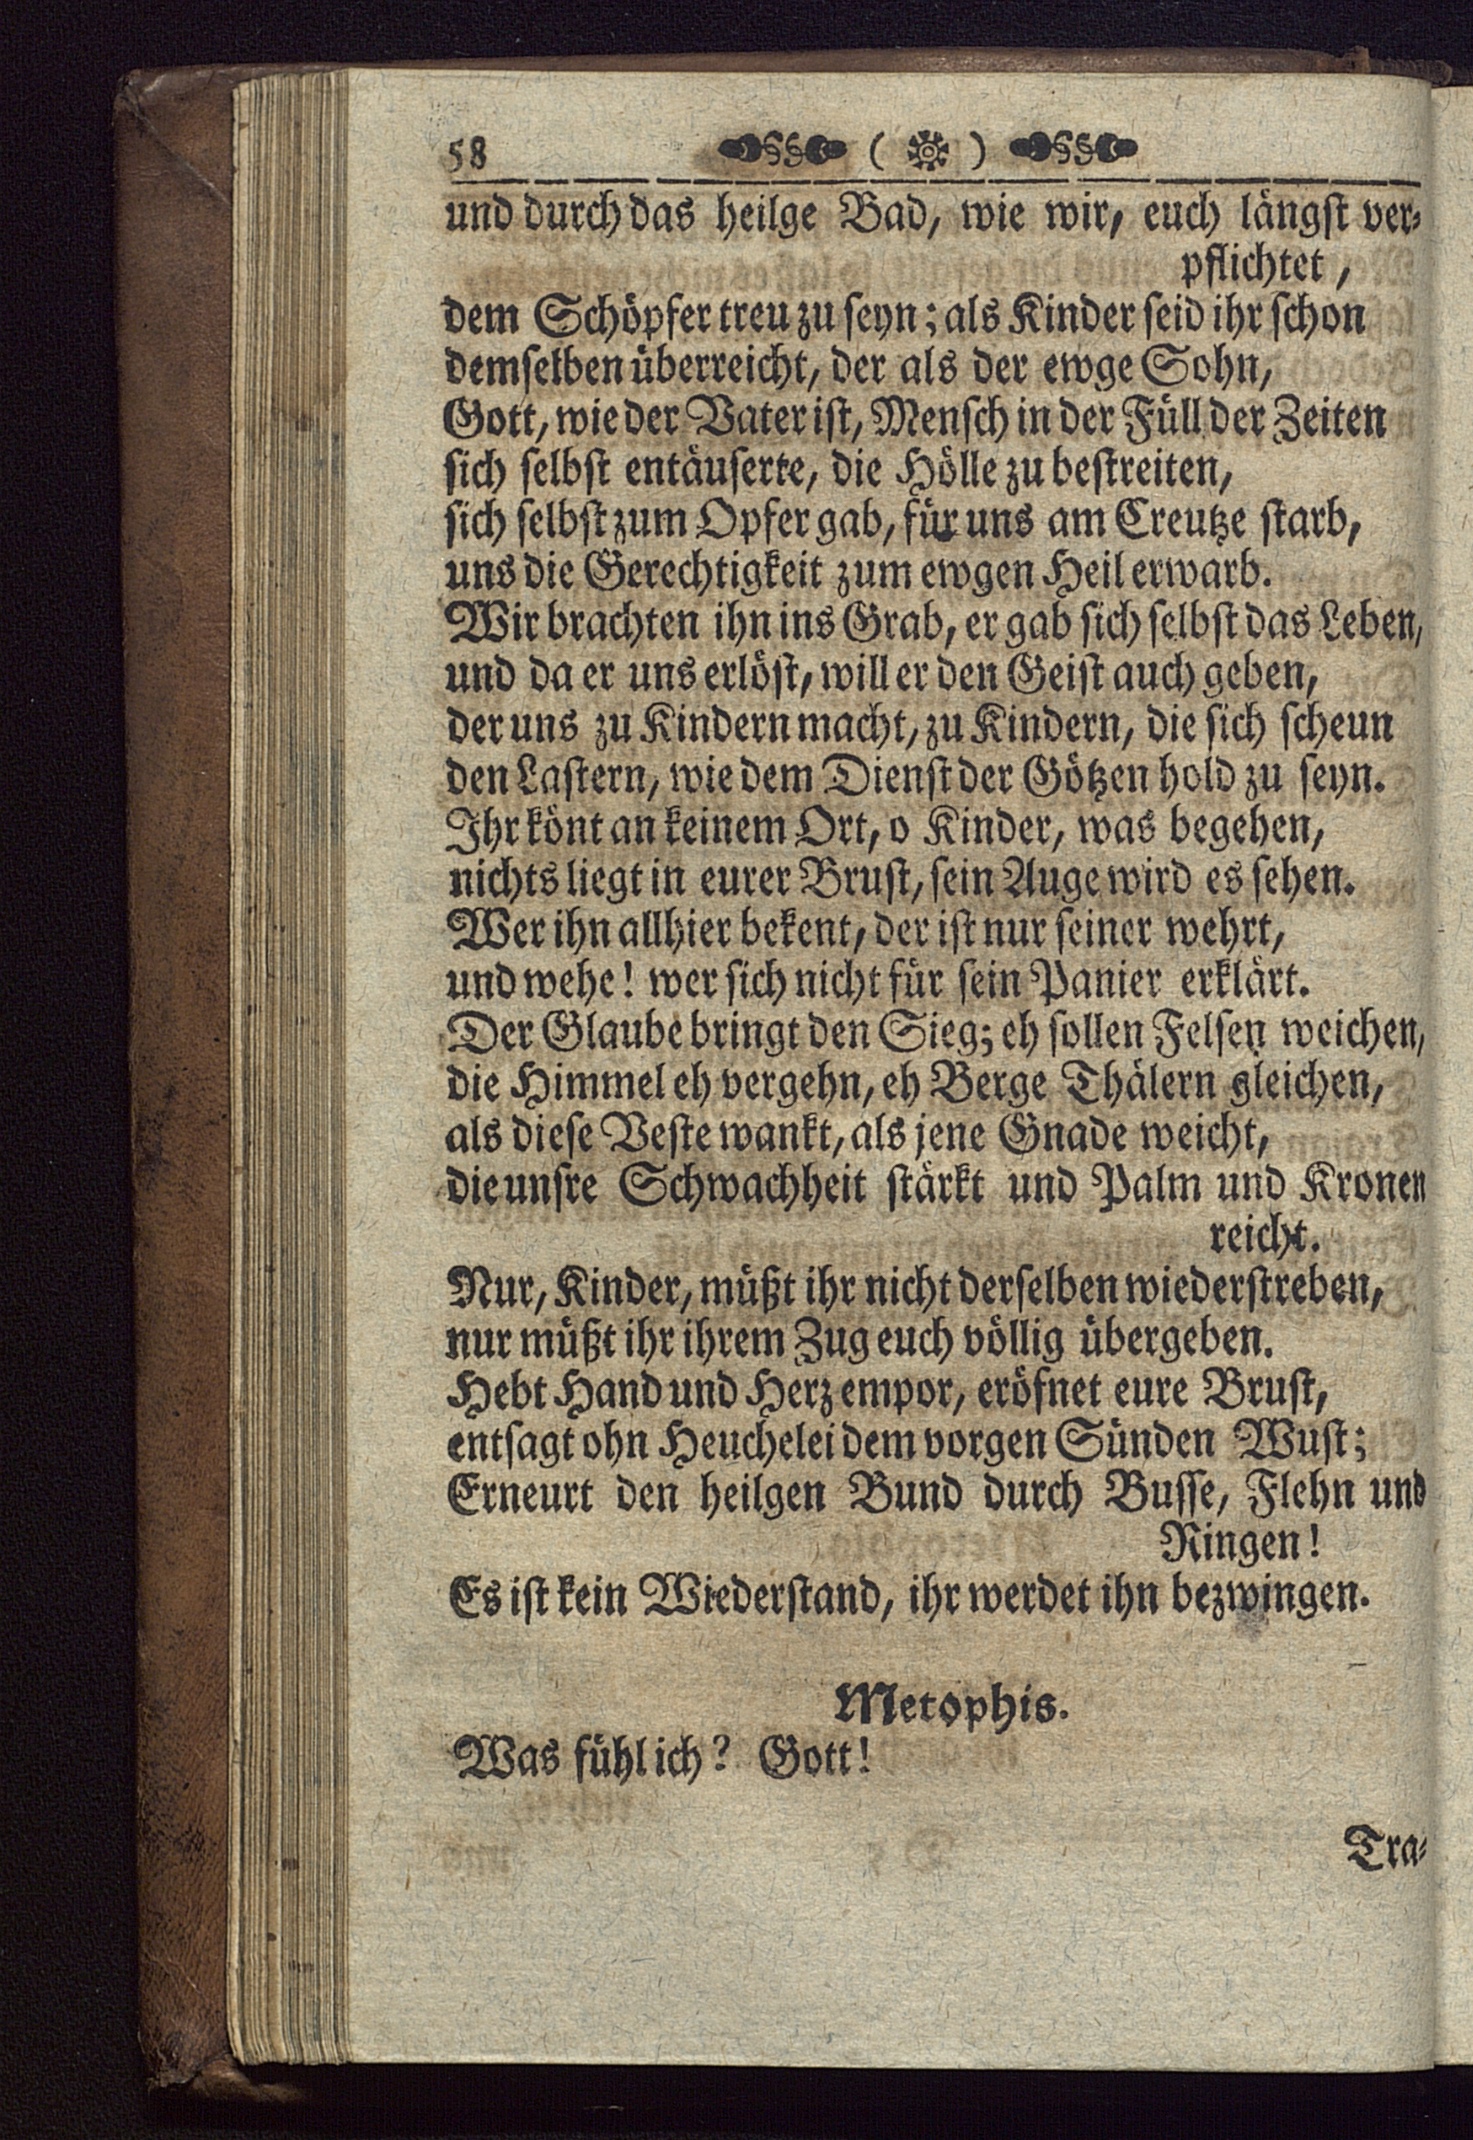 58 ( )
und durch das heilge Bad, wie wir, euch längst ver-
pflichtet,
dem Schöpfer treu zu seyn; als Kinder seid ihr schon
demselben überreicht, der als der ewge Sohn,
Gott, wie der Vater ist, Mensch in der Füll der Zeiten
sich selbst entäuserte, die Hölle zu bestreiten,
sich selbst zum Opfer gab, für uns am Creutze starb,
uns die Gerechtigkeit zum ewgen Heil erwarb.
Wir brachten ihn ins Grab, er gab sich selbst das Leben,
und da er uns erlöst, will er den Geist auch geben,
der uns zu Kindern macht, zu Kindern, die sich scheun
den Lastern, wie dem Dienst der Götzen hold zu seyn.
Ihr könt an keinem Ort, o Kinder, was begehen,
nichts liegt in eurer Brust, sein Auge wird es sehen.
Wer ihn allhier bekent, der ist nur seiner wehrt,
und wehe! wer sich nicht für sein Panier erklärt.
Der Glaube bringt den Sieg; eh sollen Felsen weichen,
die Himmel eh vergehn, eh Berge Thälern gleichen,
als diese Veste wankt, als jene Gnade weicht,
die unsre Schwachheit stärkt und Palm und Kronen
reicht.
Nur, Kinder, müßt ihr nicht derselben wiederstreben,
nur müßt ihr ihrem Zug euch völlig übergeben.
Hebt Hand und Herz empor, eröfnet eure Brust,
entsagt ohn Heuchelei dem vorgen Sünden Wust;
Erneurt den heilgen Bund durch Busse, Flehn und
Ringen!
Es ist kein Wiederstand, ihr werdet ihn bezwingen.
Metophis.
Was fühl ich? Gott!
Tra-